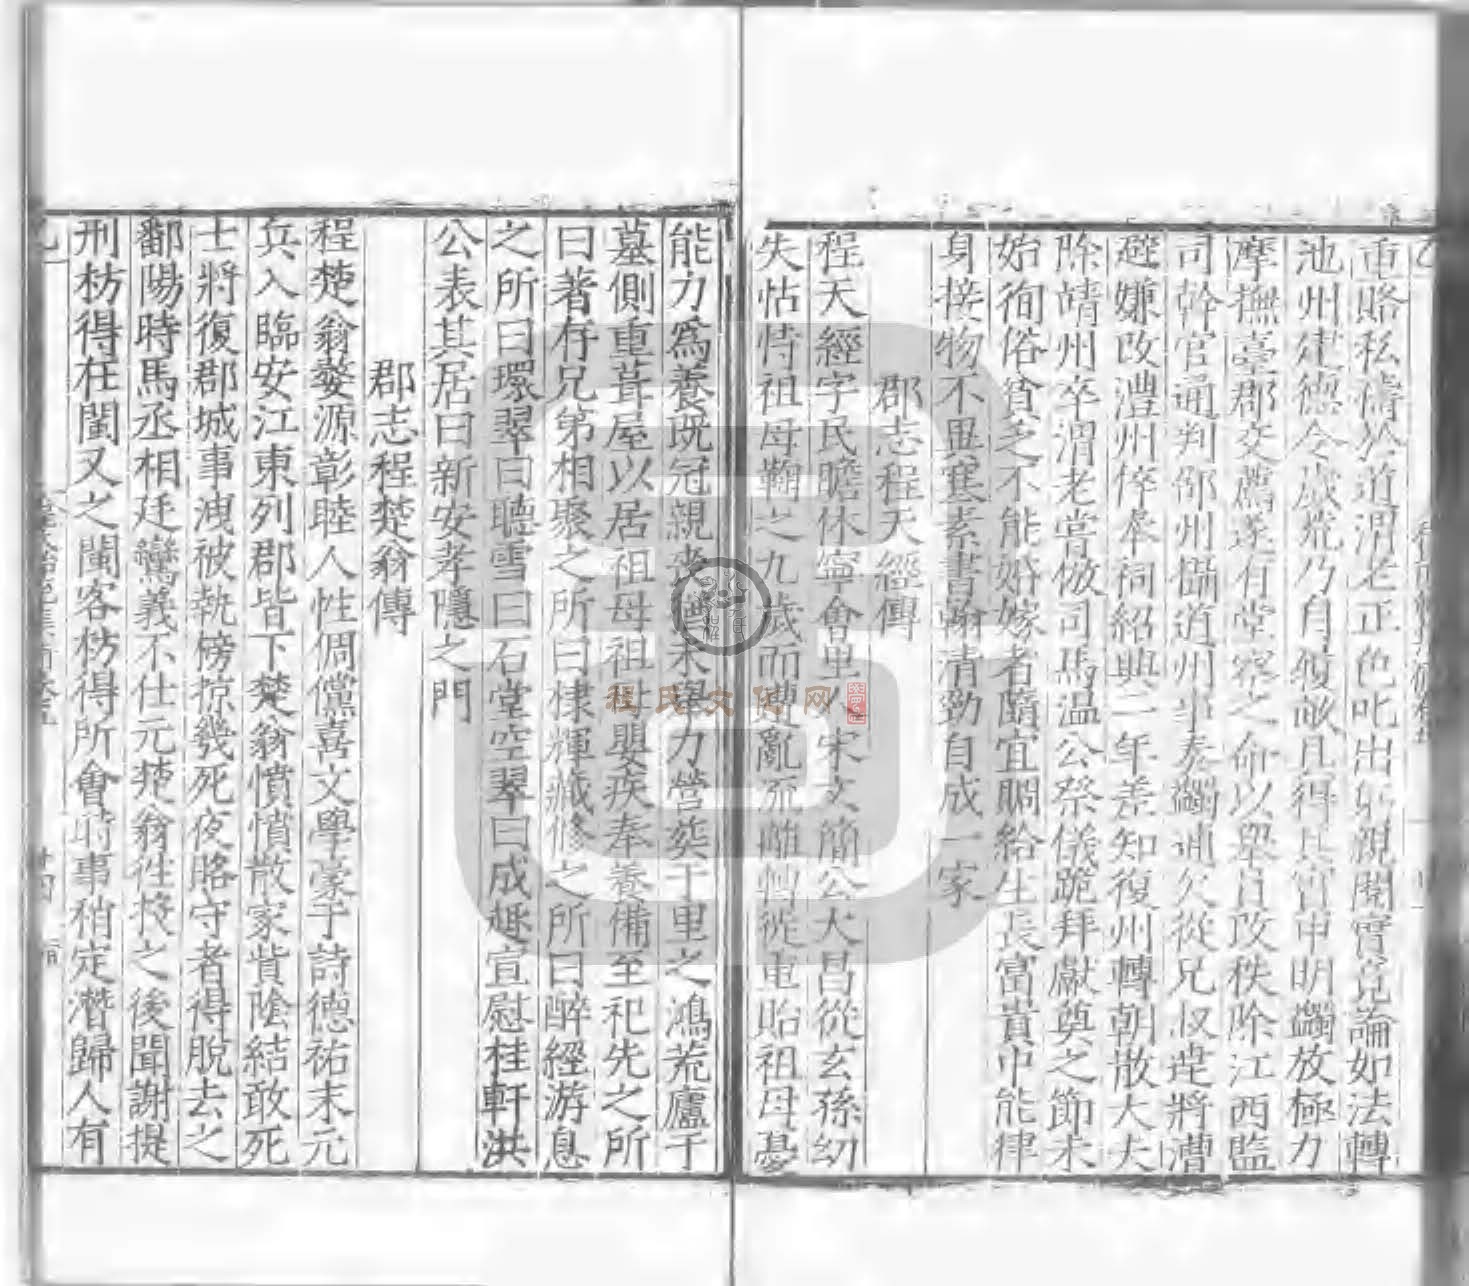 重賂私禱於道渭老正色叱出躬親閱實竟論如法轉
池州建德令歲荒乃自傾敵且得旨申明蠲放極力
摩撫臺郡交薦遂有堂察之命以舉員改秩除江西監
司幹官通判邵州攝道州事奏蠲逋欠從兄叔達將漕
避嫌改澧州倅奉祠紹興二年差知復州轉朝散大夫
除靖州卒渭老嘗倣司馬溫公祭儀跪拜獻奠之節未
始徇俗貧乏不能婚嫁者隨宜賙給生長富貴中能律
身接物不異寒素書翰清勁自成一家
郡志程天經傳
程天經字民瞻休寧會里人宋文簡公大昌從玄孫幼
失怙恃祖母鞠之九歲而遭亂流離轉從重貽祖母憂
能力為養既冠親老無未舉力營葬千里之鴻荒廬于
墓側重葺屋以居祖母祖母嬰疾奉養備至祀先之所
曰著存兄弟相聚之所曰棣輝藏修之所曰醉經游息
之所曰環翠曰聽雪曰石堂空翠曰成趣宣慰桂軒洪
公表其居曰新安孝隱之門
郡志程楚翁傳
程楚翁婺源彰睦人性倜儻喜文學豪于詩德祐末元
兵入臨安江東列郡皆下楚翁憤憤散家貲陰結敢死
士將復郡城事洩被執徬掠幾死夜賂守者得脫去之
鄱陽時馬丞相廷鸞義不仕元楚翁往投之後聞謝提
刑枋得在閩又之閩客枋得所會時事稍定潛歸人有
程氏文化网